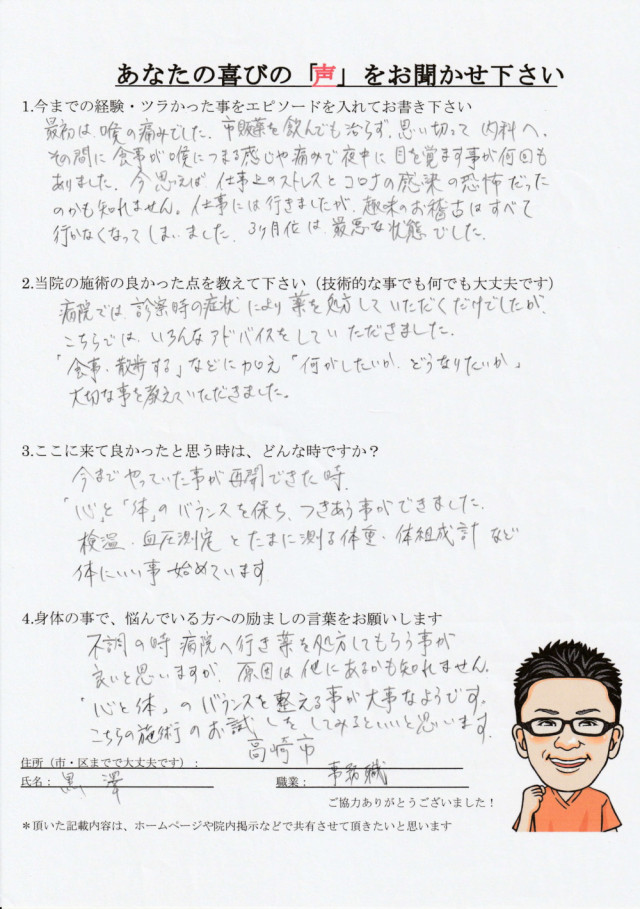 あなたの喜びの「声」をお聞かせ下さい
1.今までの経験・ツラかった事をエピソードを入れてお書き下さい
最初は、喉の痛みでした。市販薬を飲んでも治らず、思い切って内科へ。
その間に食事が喉につまる感じや痛みで夜中に目を覚ます事が何回も
ありました。今思えば、仕事上のストレスとコロナの感染の恐怖だった
のかも知れません。仕事には行きましたが、趣味のお稽古はすべて
行かなくなってしまいました。3ヶ月位は、最悪な状態でした。
2.当院の施術の良かった点を教えて下さい（技術的な事でも何でも大丈夫です）
病院では、診察時の症状により薬を処方していただくだけでしたが、
こちらでは、いろんなアドバイスをしていただきました。
「食事、散歩する」などに加え「何がしたいか、どうなりたいか」
大切な事を教えていただきました。
3.ここに来て良かったと思う時は、どんな時ですか？
今までやっていた事が再開できた時、
「心」と「体」のバランスを保ち、つきあう事ができました。
検温、血圧測定とたまに測る体重・体組成計など
体にいい事始めています
4.身体の事で、悩んでいる方への励ましの言葉をお願いします
不調の時病院へ行き薬を処方してもらう事が
良いと思いますが、原因は他にあるかも知れません。
「心と体」のバランスを整える事が大事なようです。
こちらの施術のお試しをしてみるといいと思います。
高崎市
住所（市・区までで大丈夫です）：
氏名： 黒澤 職業： 事務職
ご協力ありがとうございました！
＊頂いた記載内容は、ホームページや院内掲示などで共有させて頂きたいと思います